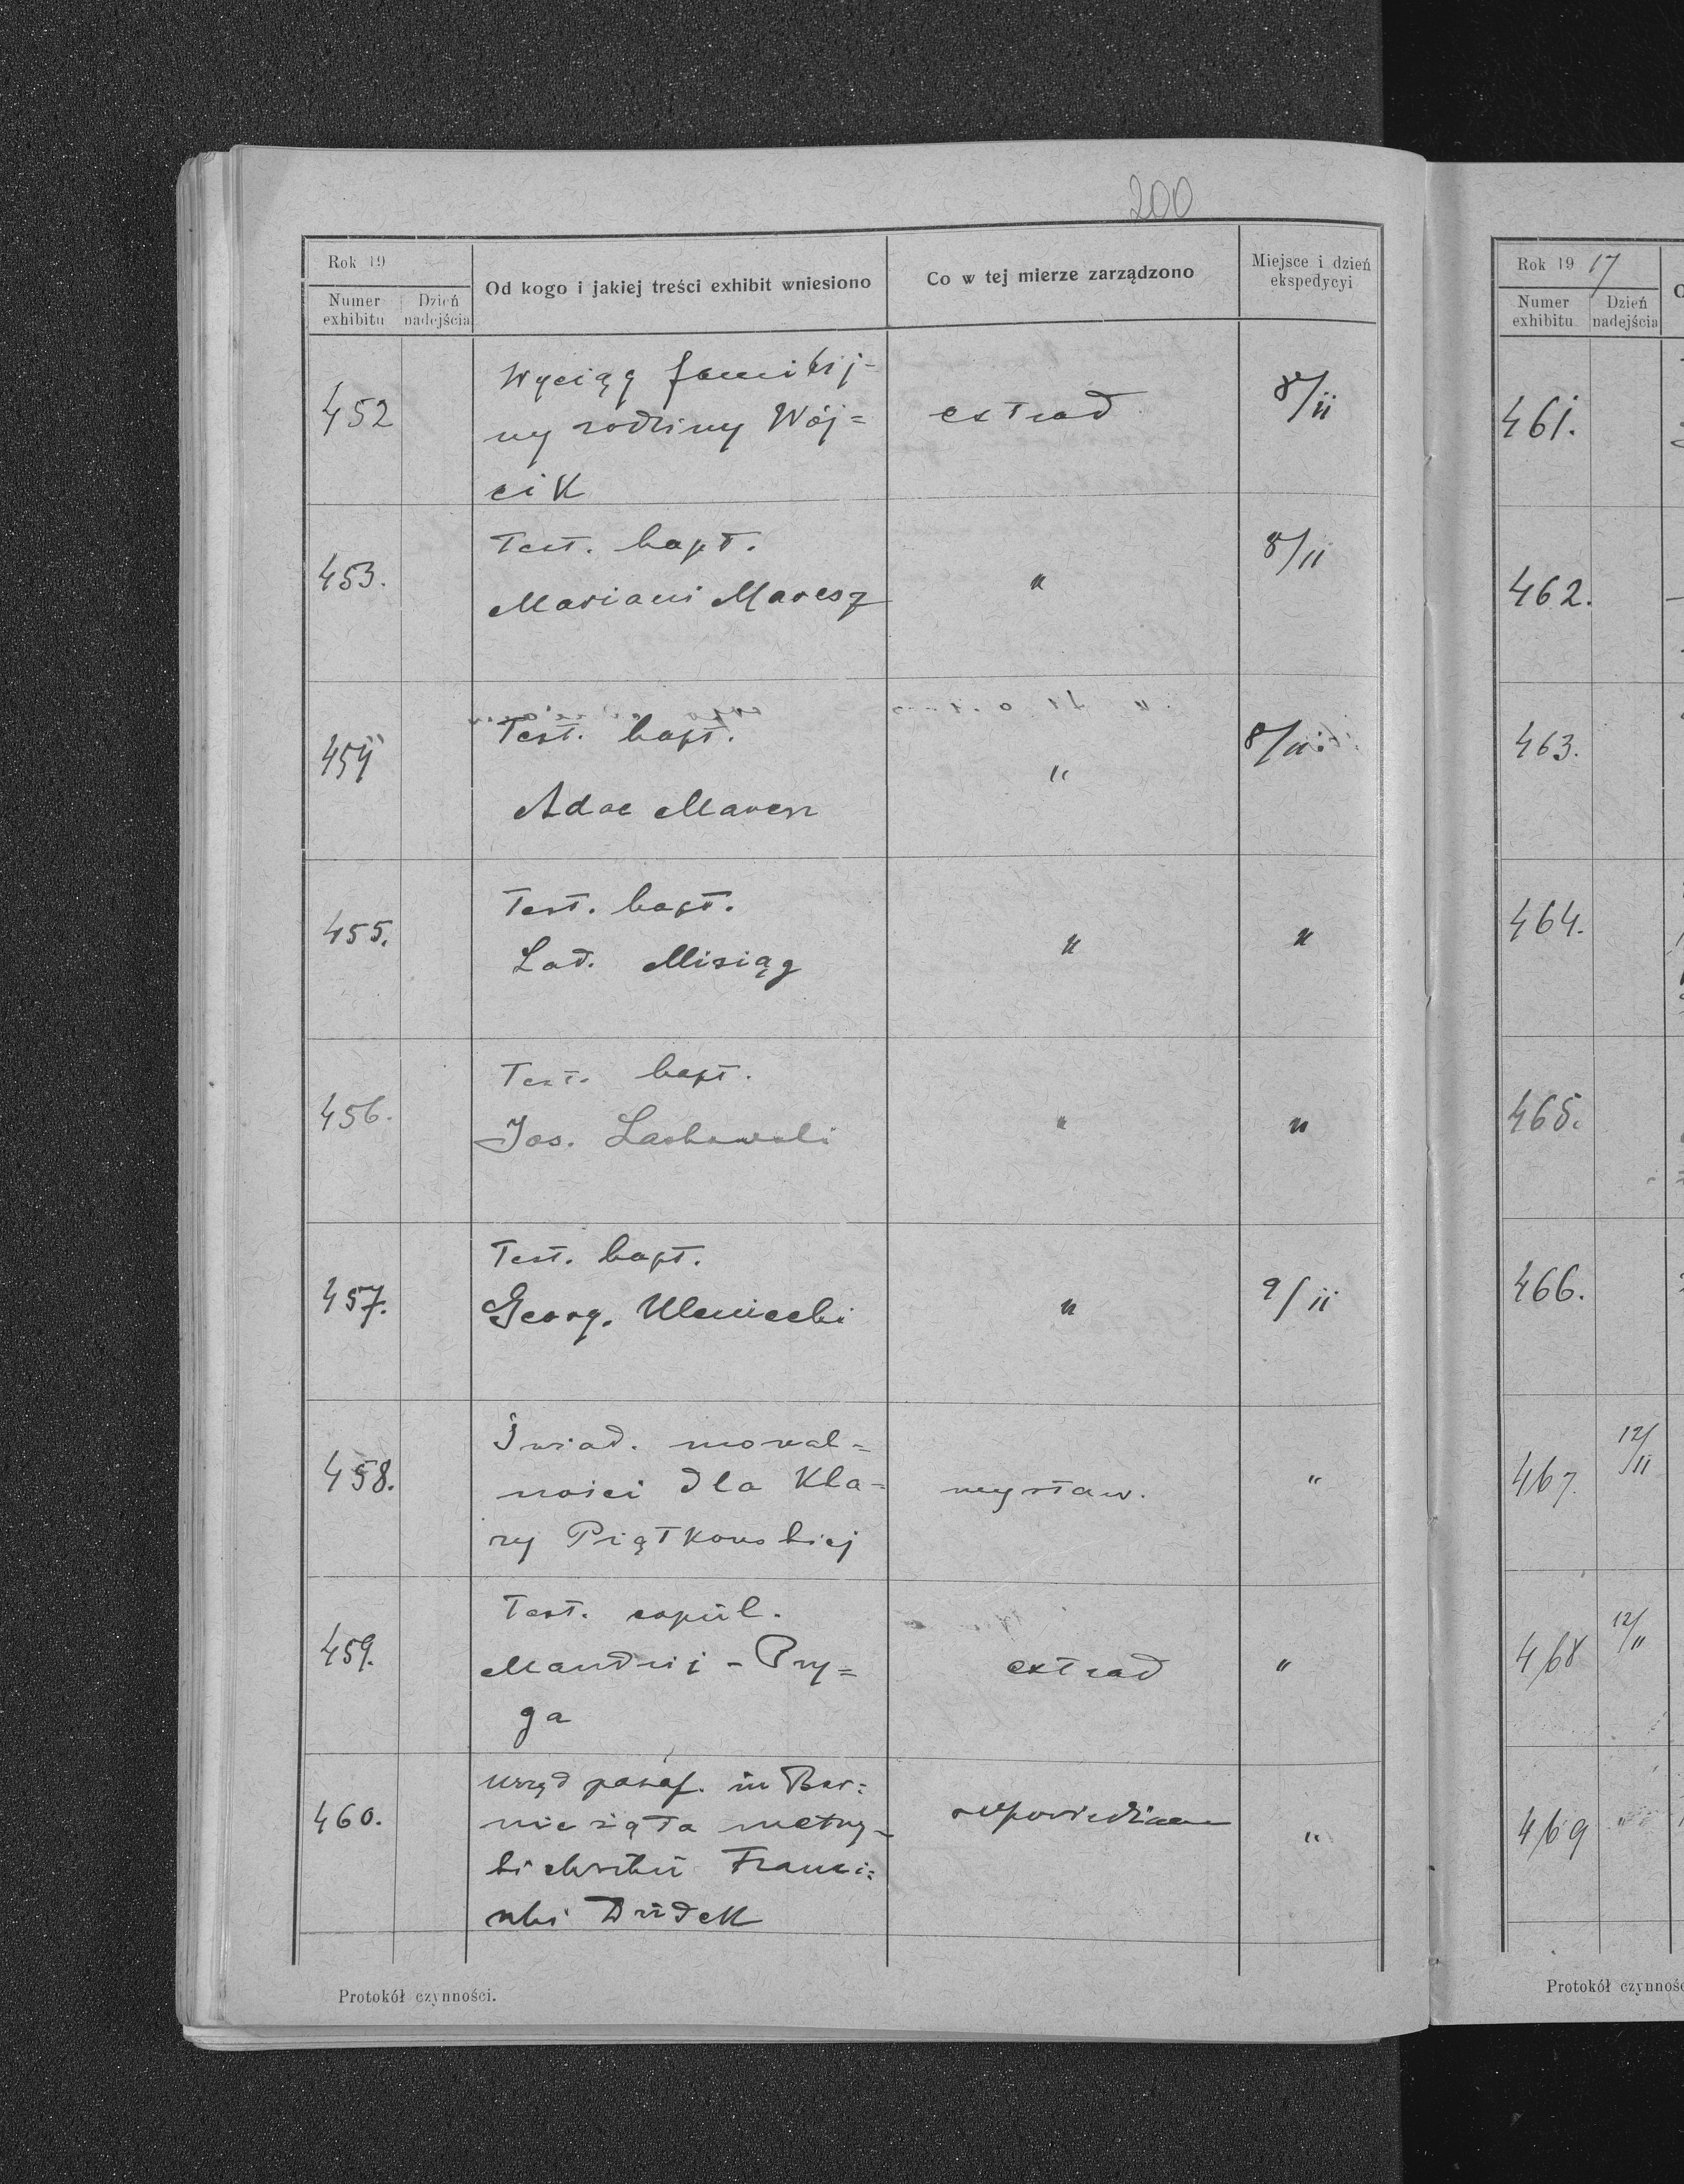 200
Rok 19
Numer exhibitu
Dzień nadejścia
Od kogo i jakiej treści exhibit wniesiono
Co w tej mierze zarządzono
Miejsce i dzień ekspedycyi
452
Wyciąg familij-
ny rodziny Wój=
cik
extrad
8/ii
453.
Test. bapt.
Mariani Maresz
"
8/11
454
Test. bapt.
Adae Maresz
"
8/11.
455.
Test. bapt.
Lad. Misiąg
"
"
456.
Test. bapt.
Jos. Laskowski
"
"
457.
Test. bapt.
Georg.
"
9/ii
458.
Świad. moral=
ności dla Kla-
ry Piątkowskiej
wystaw.
"
459.
Test. copul.
Mandrij - Pry=
ga
extrad
"
460.
Urząd paraf. in
nie żąda metry-
ki chrztu Franci:
szki Dudek
"
Protokół czynności.
Rok 19 17
Numer exhibitu
Dzień nadejścia
461.
462.
463.
464.
465.
466.
467.
12/11
468
12/11
469
"
Protokół czynnoś